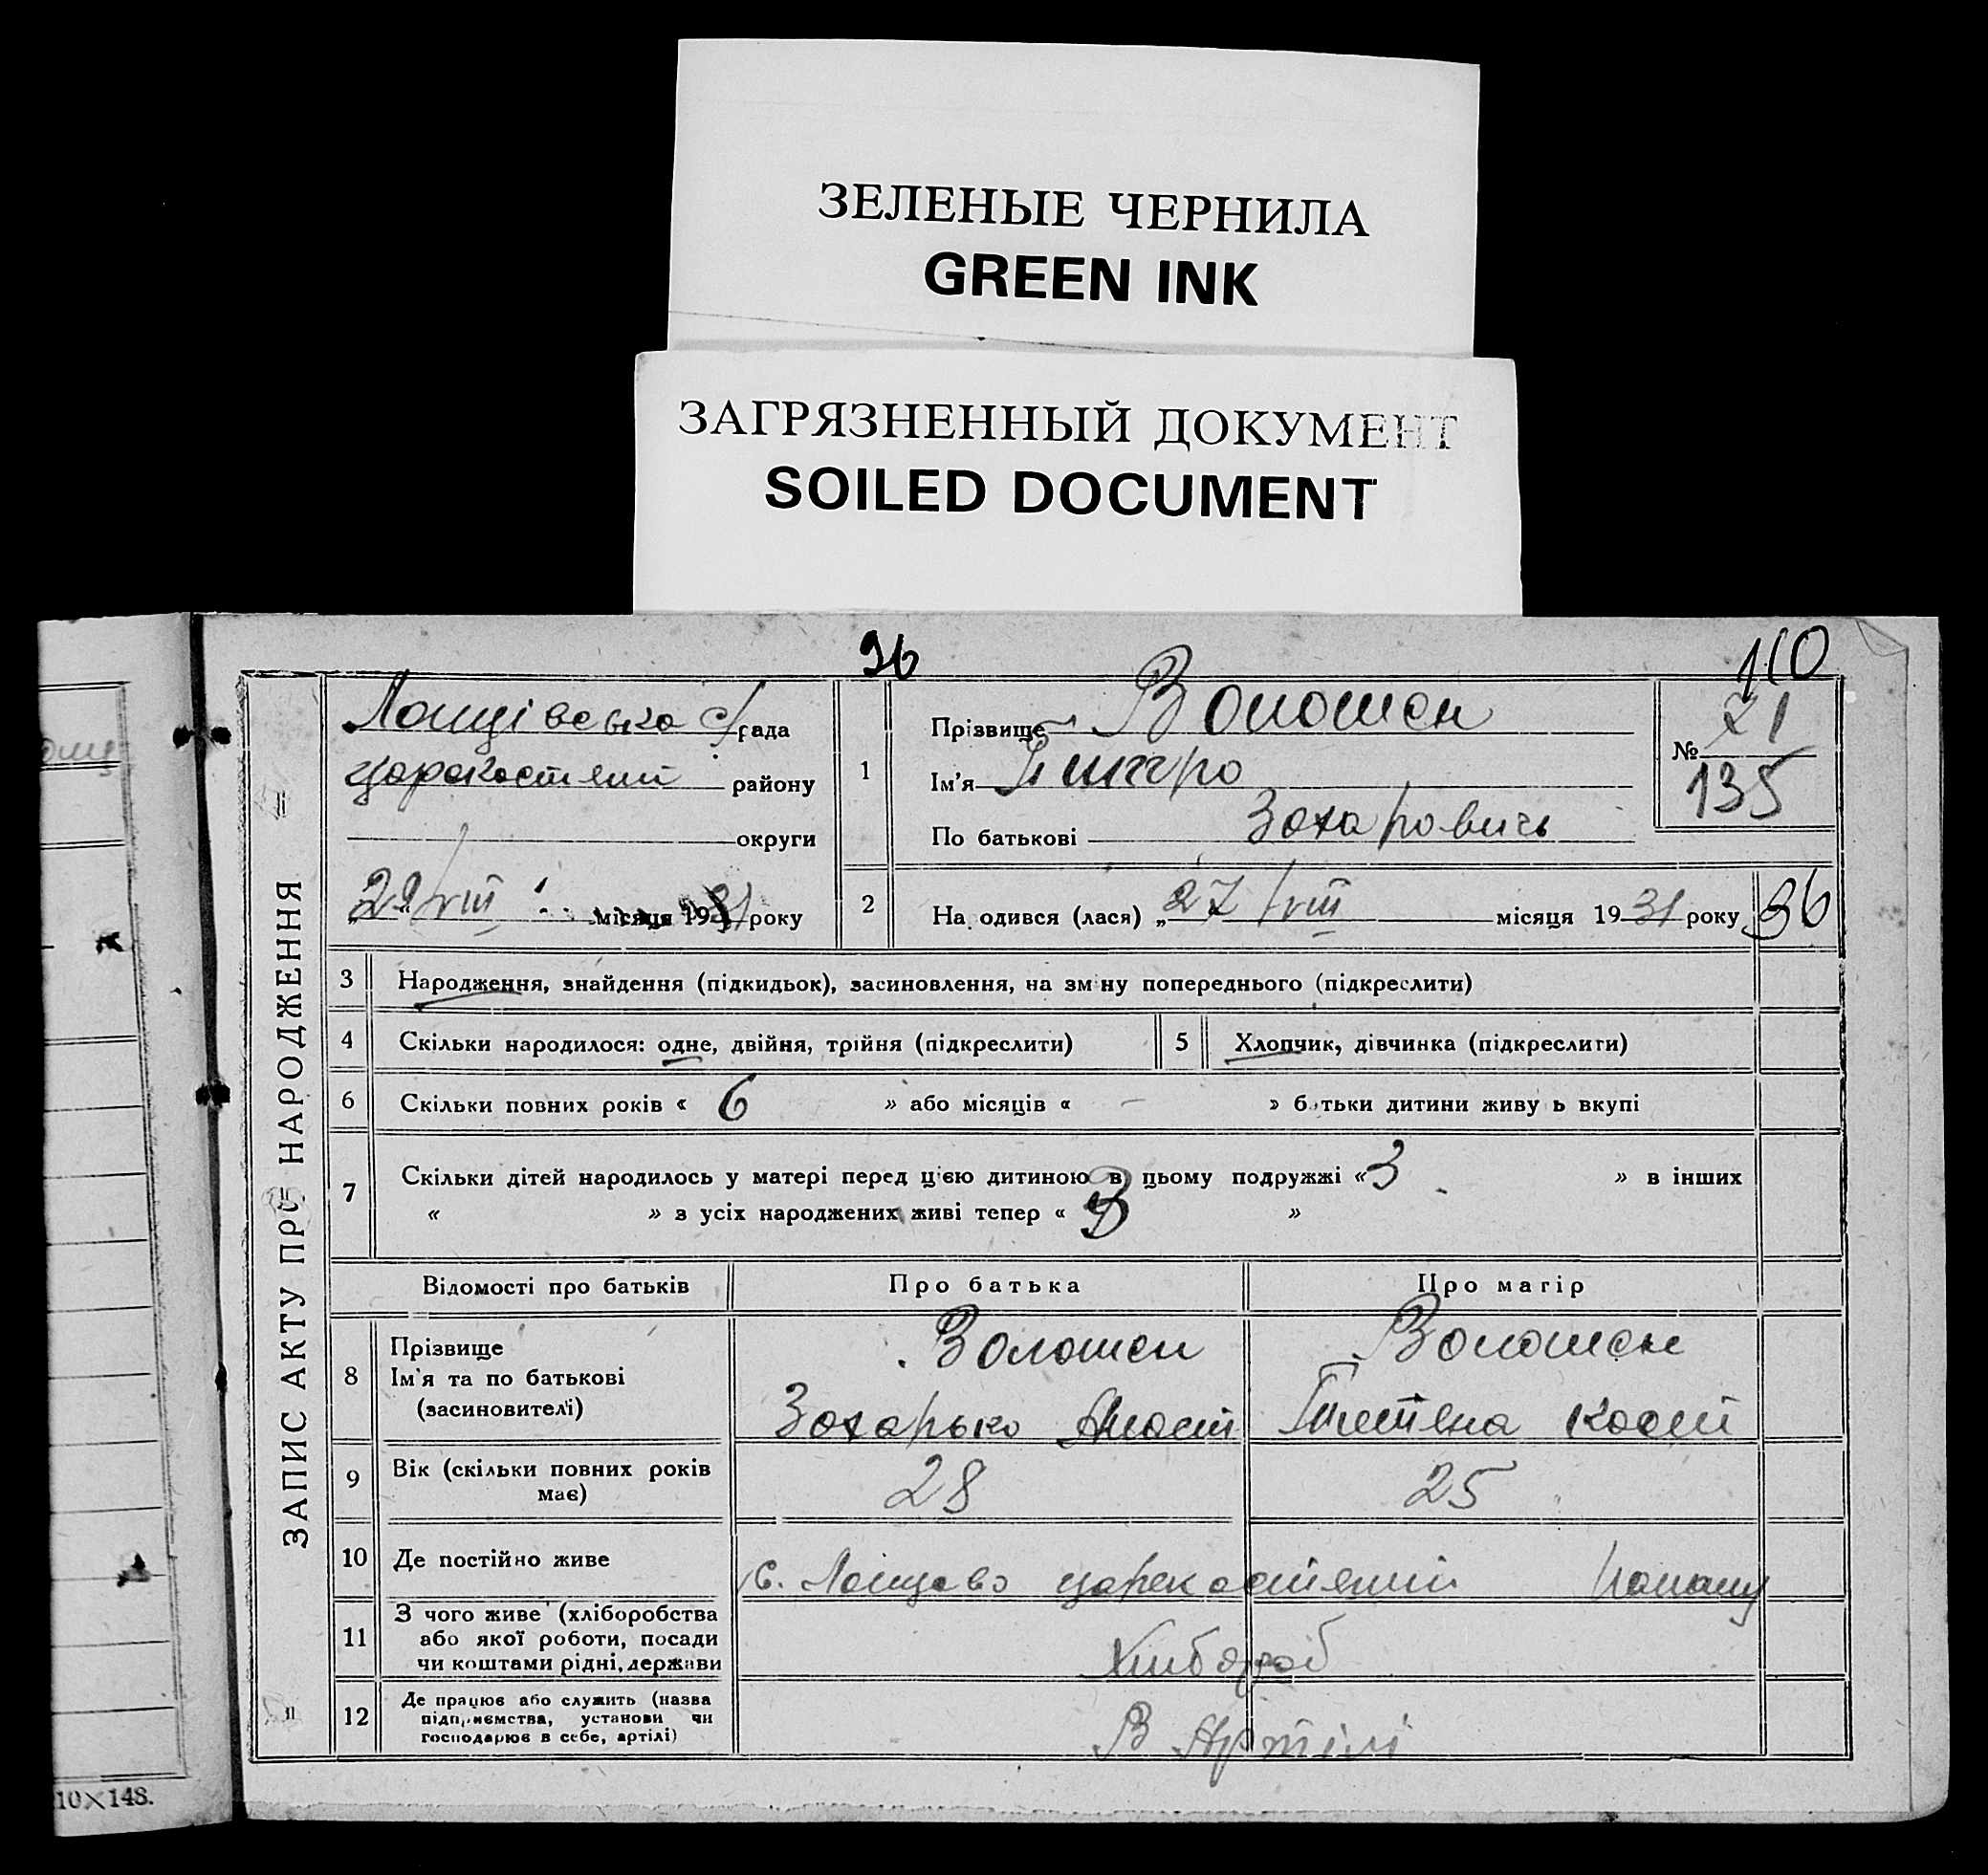 ЗЕЛЕНЫЕ ЧЕРНИЛА
GREEN INK
ЗАГРЯЗНЕННЫЙ ДОКУМЕНТ
SOILED DOCUMENT
96
110
ЗАПИС АКТУ ПРО НАРОДЖЕННЯ
рада
району
округи
29/VIII місяця 1931 року
1
Прізвище Волошен
Ім'я
По батькові Захарович
№ 71
135
2
Народився (лася) „27/VIII місяця 1931 року
96
3 Народження, знайдення (підкидьок), засиновлення, на зміну попереднього (підкреслити)
4 Скільки народилося: одне, двійня, трійня (підкреслити)
5 Хлопчик, дівчинка (підкреслити)
6 Скільки повних років « 6 » або місяців « – » батьки дитини живуть вкупі
7 Скільки дітей народилось у матері перед цією дитиною в цьому подружжі « 3 » в інших
« » з усіх народжених живі тепер « 3 »
Відомості про батьків Про батька Про матір
8 Прізвище
Ім'я та по батькові
(засиновителі)
Волошен
Захарько
Волошен
Тетяна Кост
9 Вік (скільки повних років
має)
28
25
10 Де постійно живе
с.
11 З чого живе (хліборобства
або якої роботи, посади
чи коштами рідні, держави
Хлібороб
12 Де працює або служить (назва
підприємства, установи чи
господарює в себе, артілі)
В Артілі
10×148.